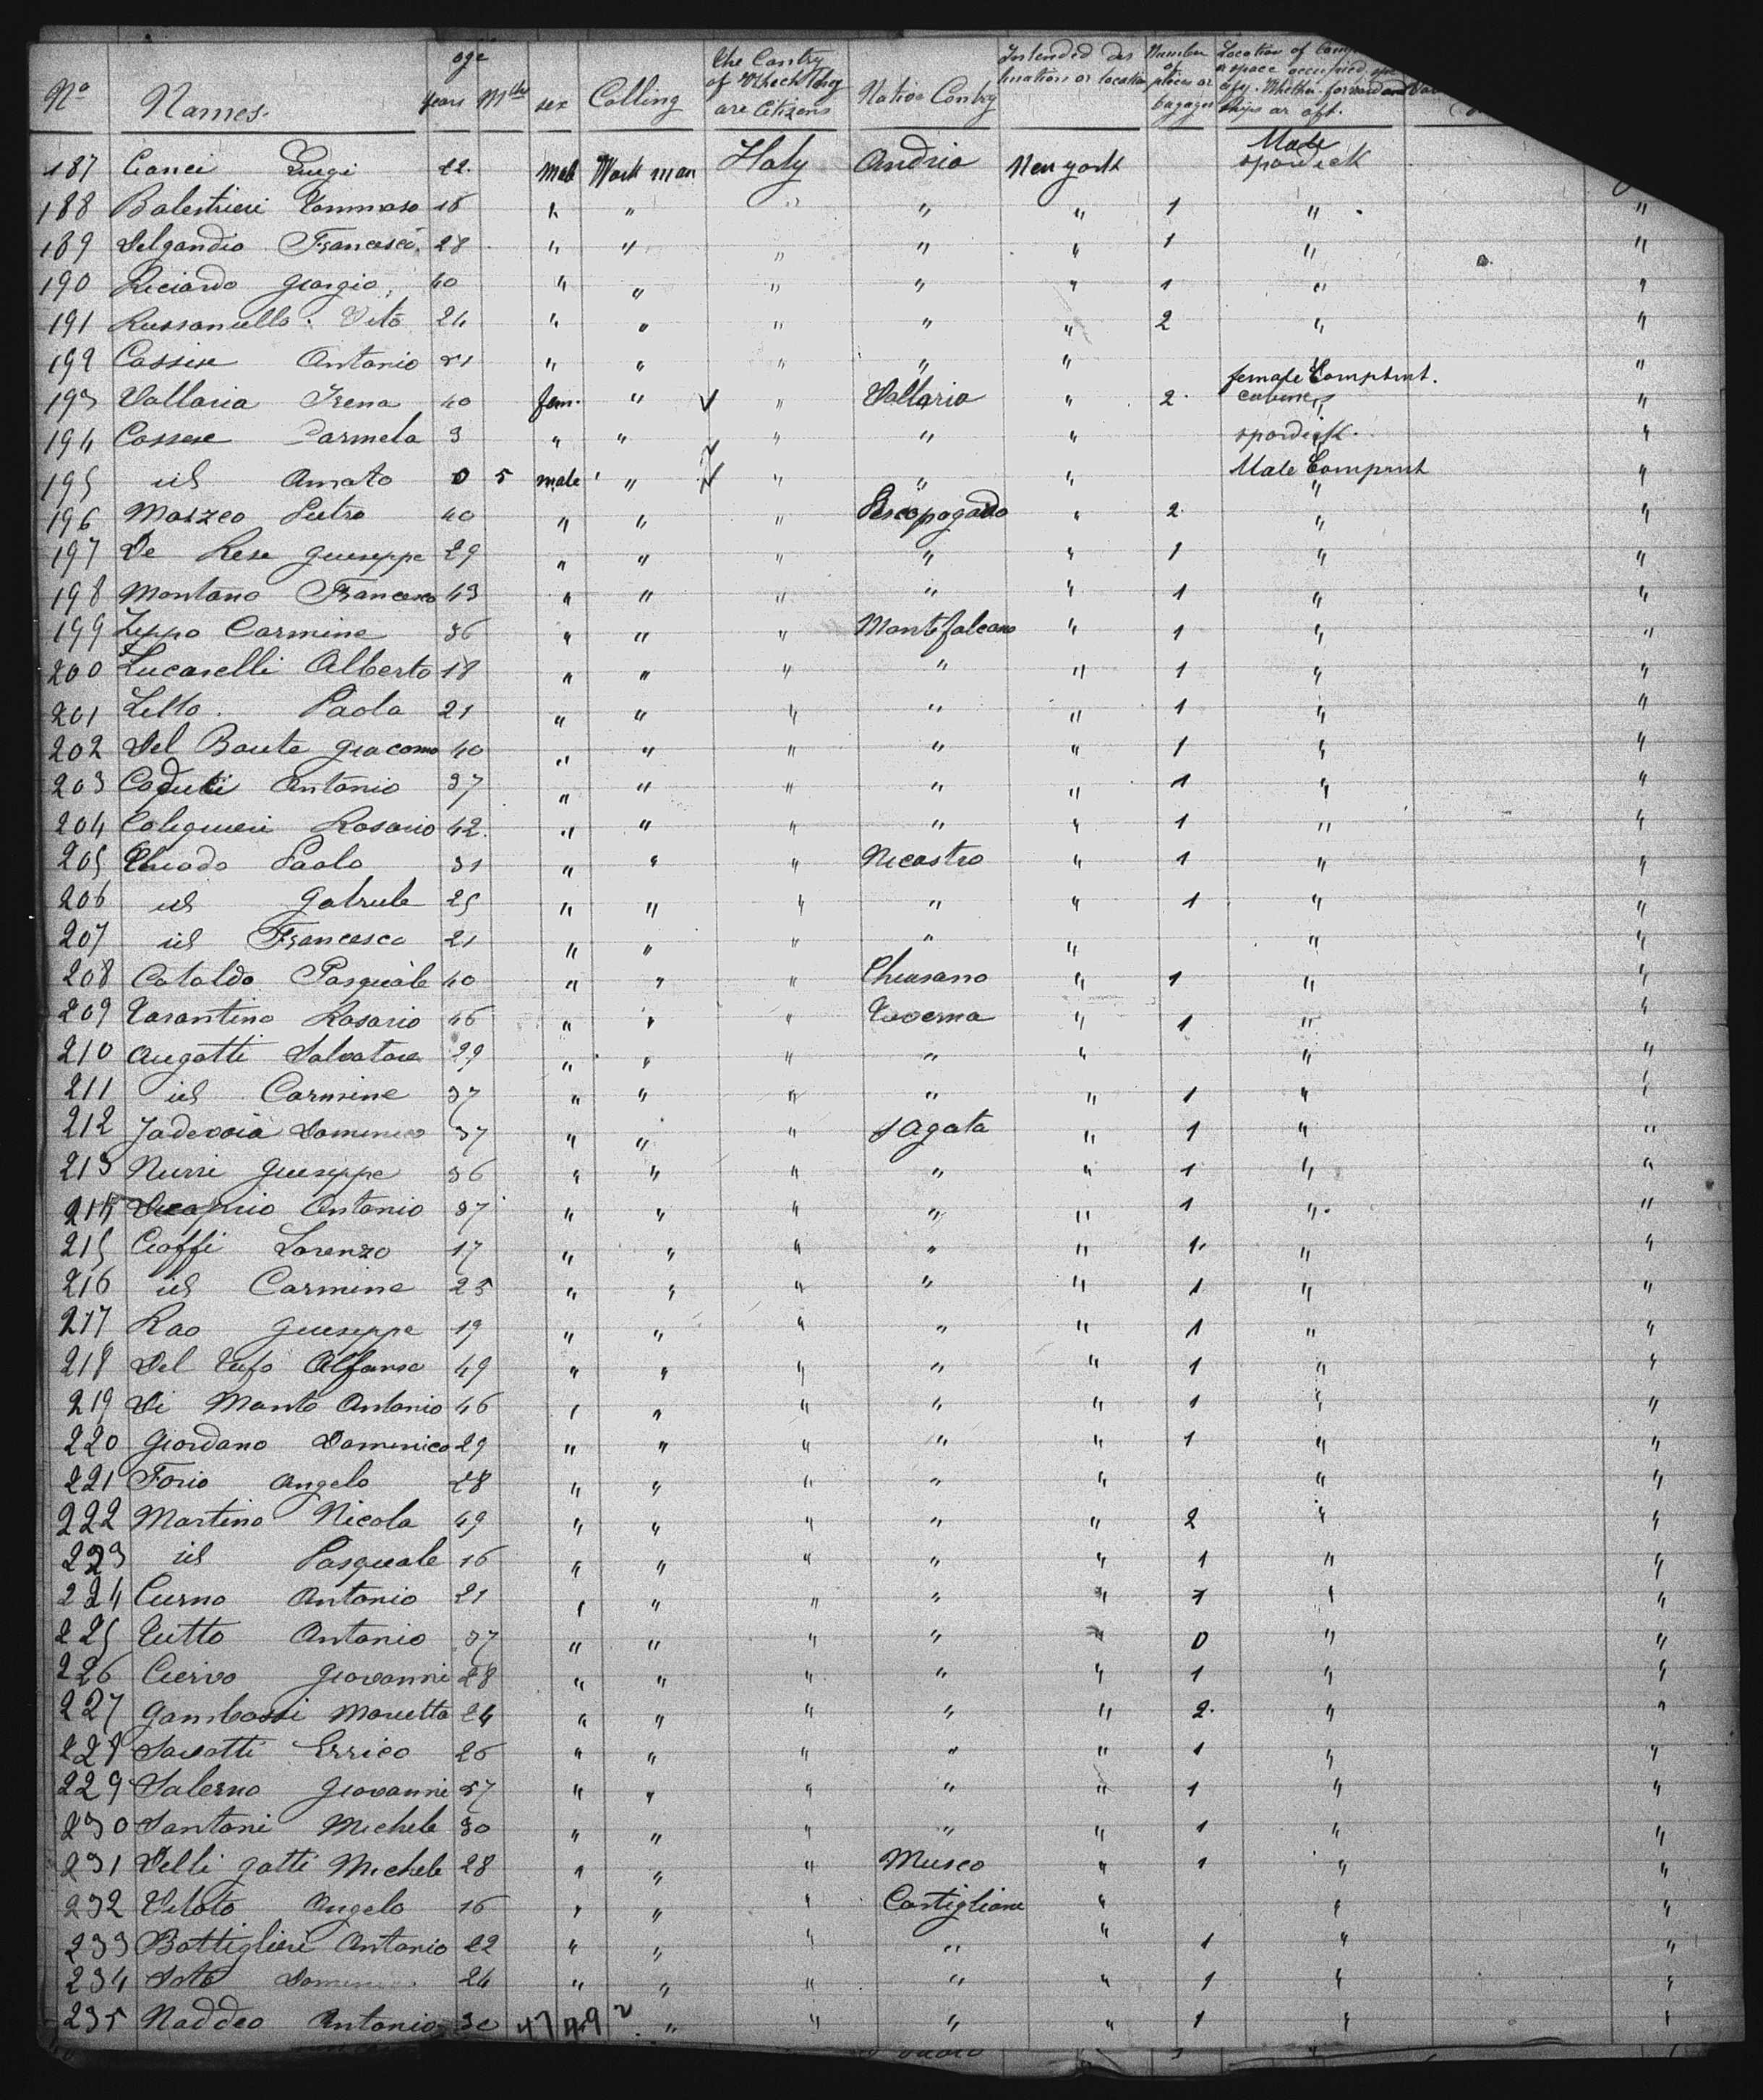 No Names. age years Mths sex Calling the Contry of Which they are Citizens Native Contry Intended des tination or location Number of pieces or bagages Location of a space occupied Whether forward ships or aft.
187 Cianci Luigi 22 Male Work man Italy Andria New york Male spardeck
188 Balestrieri Tommaso 18 " " " " " 1 " "
189 Delgandio Francesco 28 " " " " " 1 " "
190 Riciardo Giorgio 40 " " " " " 1 " "
191 Russaniello Vito 24 " " " " " 2 " "
192 Cassese Antonio 21 " " " " " "
female Comptmt.
193 Vallaria Irena 40 fem. " " Vallaria " 2 "
194 Cassese Carmela 3 " " " " " spardeck "
195 id Amato 0 5 male " " " " Male Compmt "
196 Mazzeo Pietro 40 " " " Pescopagano " 2 " "
197 De Rese Giuseppe 29 " " " " " 1 " "
198 Montano Francesco 43 " " " " " 1 " "
199 Zeppo Carmine 36 " " " Montefalcone " 1 " "
200 Lucarelli Alberto 18 " " " " " 1 " "
201 Lello Paolo 21 " " " " " 1 " "
202 Del Baute Giacomo 40 " " " " " 1 " "
203 Caputi Antonio 37 " " " " " 1 " "
204 Rosario 42 " " " " " 1 " "
205 Chiodo Paolo 31 " " " Nicastro " 1 " "
206 id Gabriele 25 " " " " " 1 " "
207 id Francesco 21 " " " " " " "
208 Cataldo Pasquale 40 " " " Chiusano " 1 " "
209 Tarantino Rosario 46 " " " Taverna " 1 " "
210 Augotti Salvatore 29 " " " " " " "
211 id Carmine 37 " " " " " 1 " "
212 Jadevaia Domenico 37 " " " S Agata " 1 " "
213 Nurri Giuseppe 36 " " " " " 1 " "
214 Antonio 37 " " " " " 1 " "
215 Cioffi Lorenzo 17 " " " " " 1 " "
216 id Carmine 25 " " " " " 1 " "
217 Rao Giuseppe 19 " " " " " 1 " "
218 Del Tufo Alfonso 49 " " " " " 1 " "
219 Di Manto Antonio 46 " " " " " 1 " "
220 Giordano Domenico 29 " " " " " 1 " "
221 Forio Angelo 28 " " " " " " "
222 Martino Nicola 49 " " " " " 2 " "
223 id Pasquale 16 " " " " " 1 " "
224 Curno Antonio 21 " " " " " 1 " "
225 Tutto Antonio 37 " " " " " 0 " "
226 Ciervo Giovanni 28 " " " " " 1 " "
227 Gambassi Marietta 24 " " " " " 2 " "
228 Savotti Errico 26 " " " " " 1 " "
229 Salerno Giovanni 27 " " " " " 1 " "
230 Santoni Michele 30 " " " " " 1 " "
231 Delli Gatti Michele 28 " " " Museo " 1 " "
232 Angelo 16 " " " Castiglione " " "
233 Bottiglieri Antonio 22 " " " " " 1 " "
234 Soto 24 " " " " " 1 " "
235 Naddeo Antonio 30 " " " " 1 " "